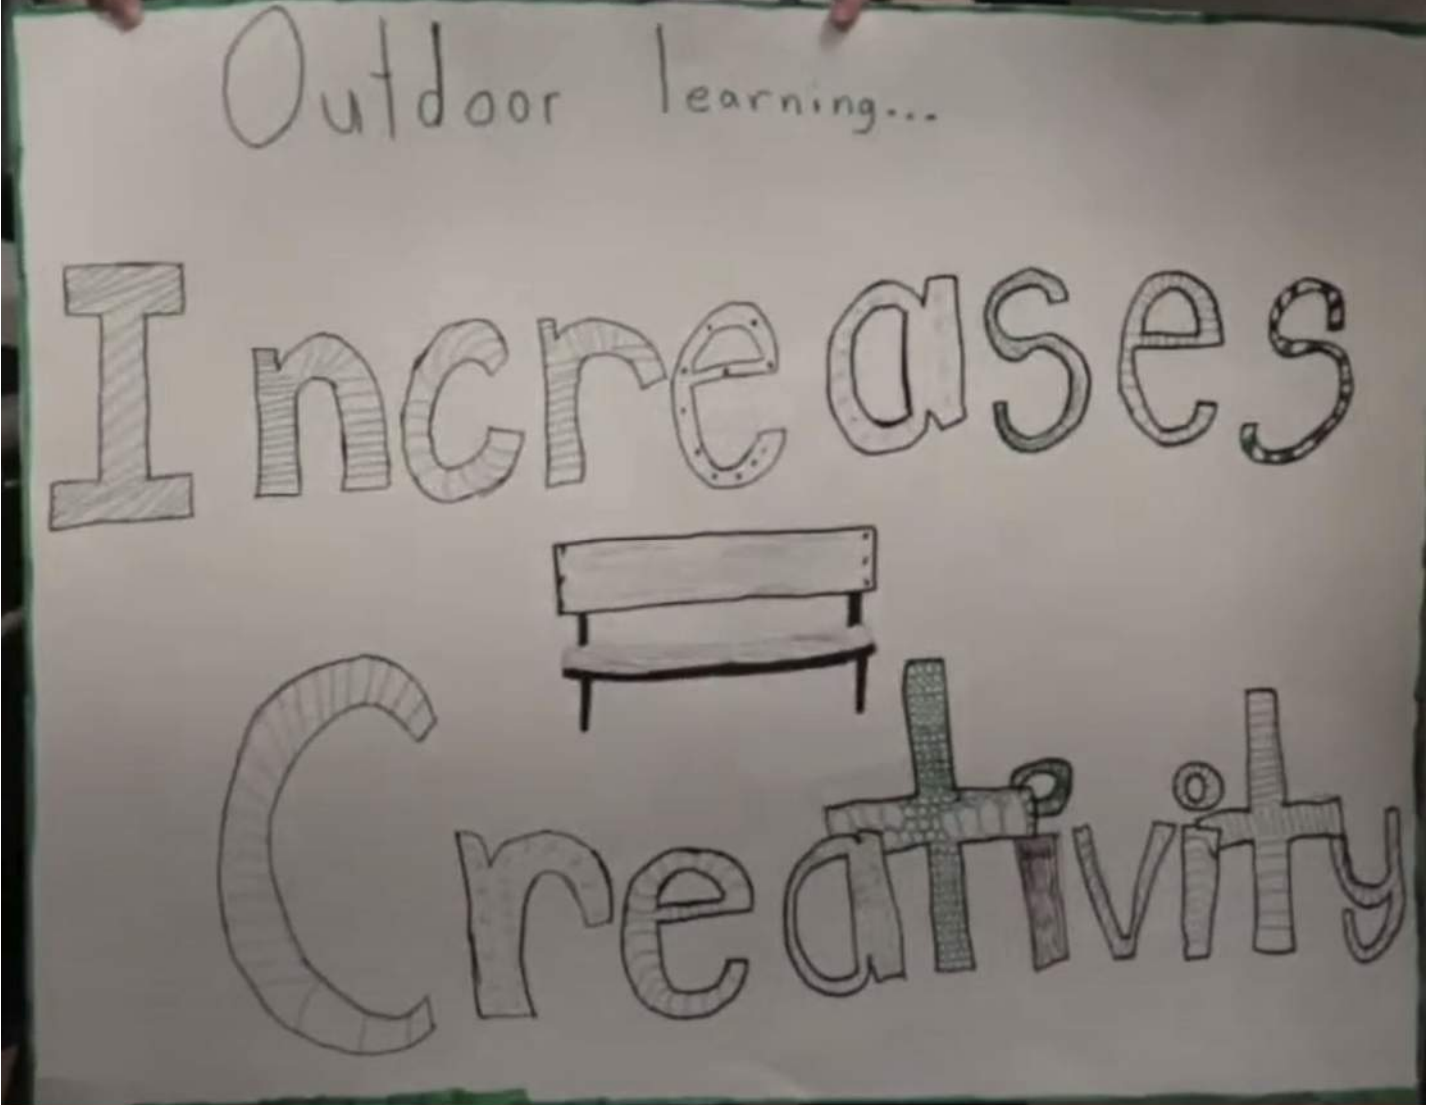 Outdoor learning...
Increases
Creativity